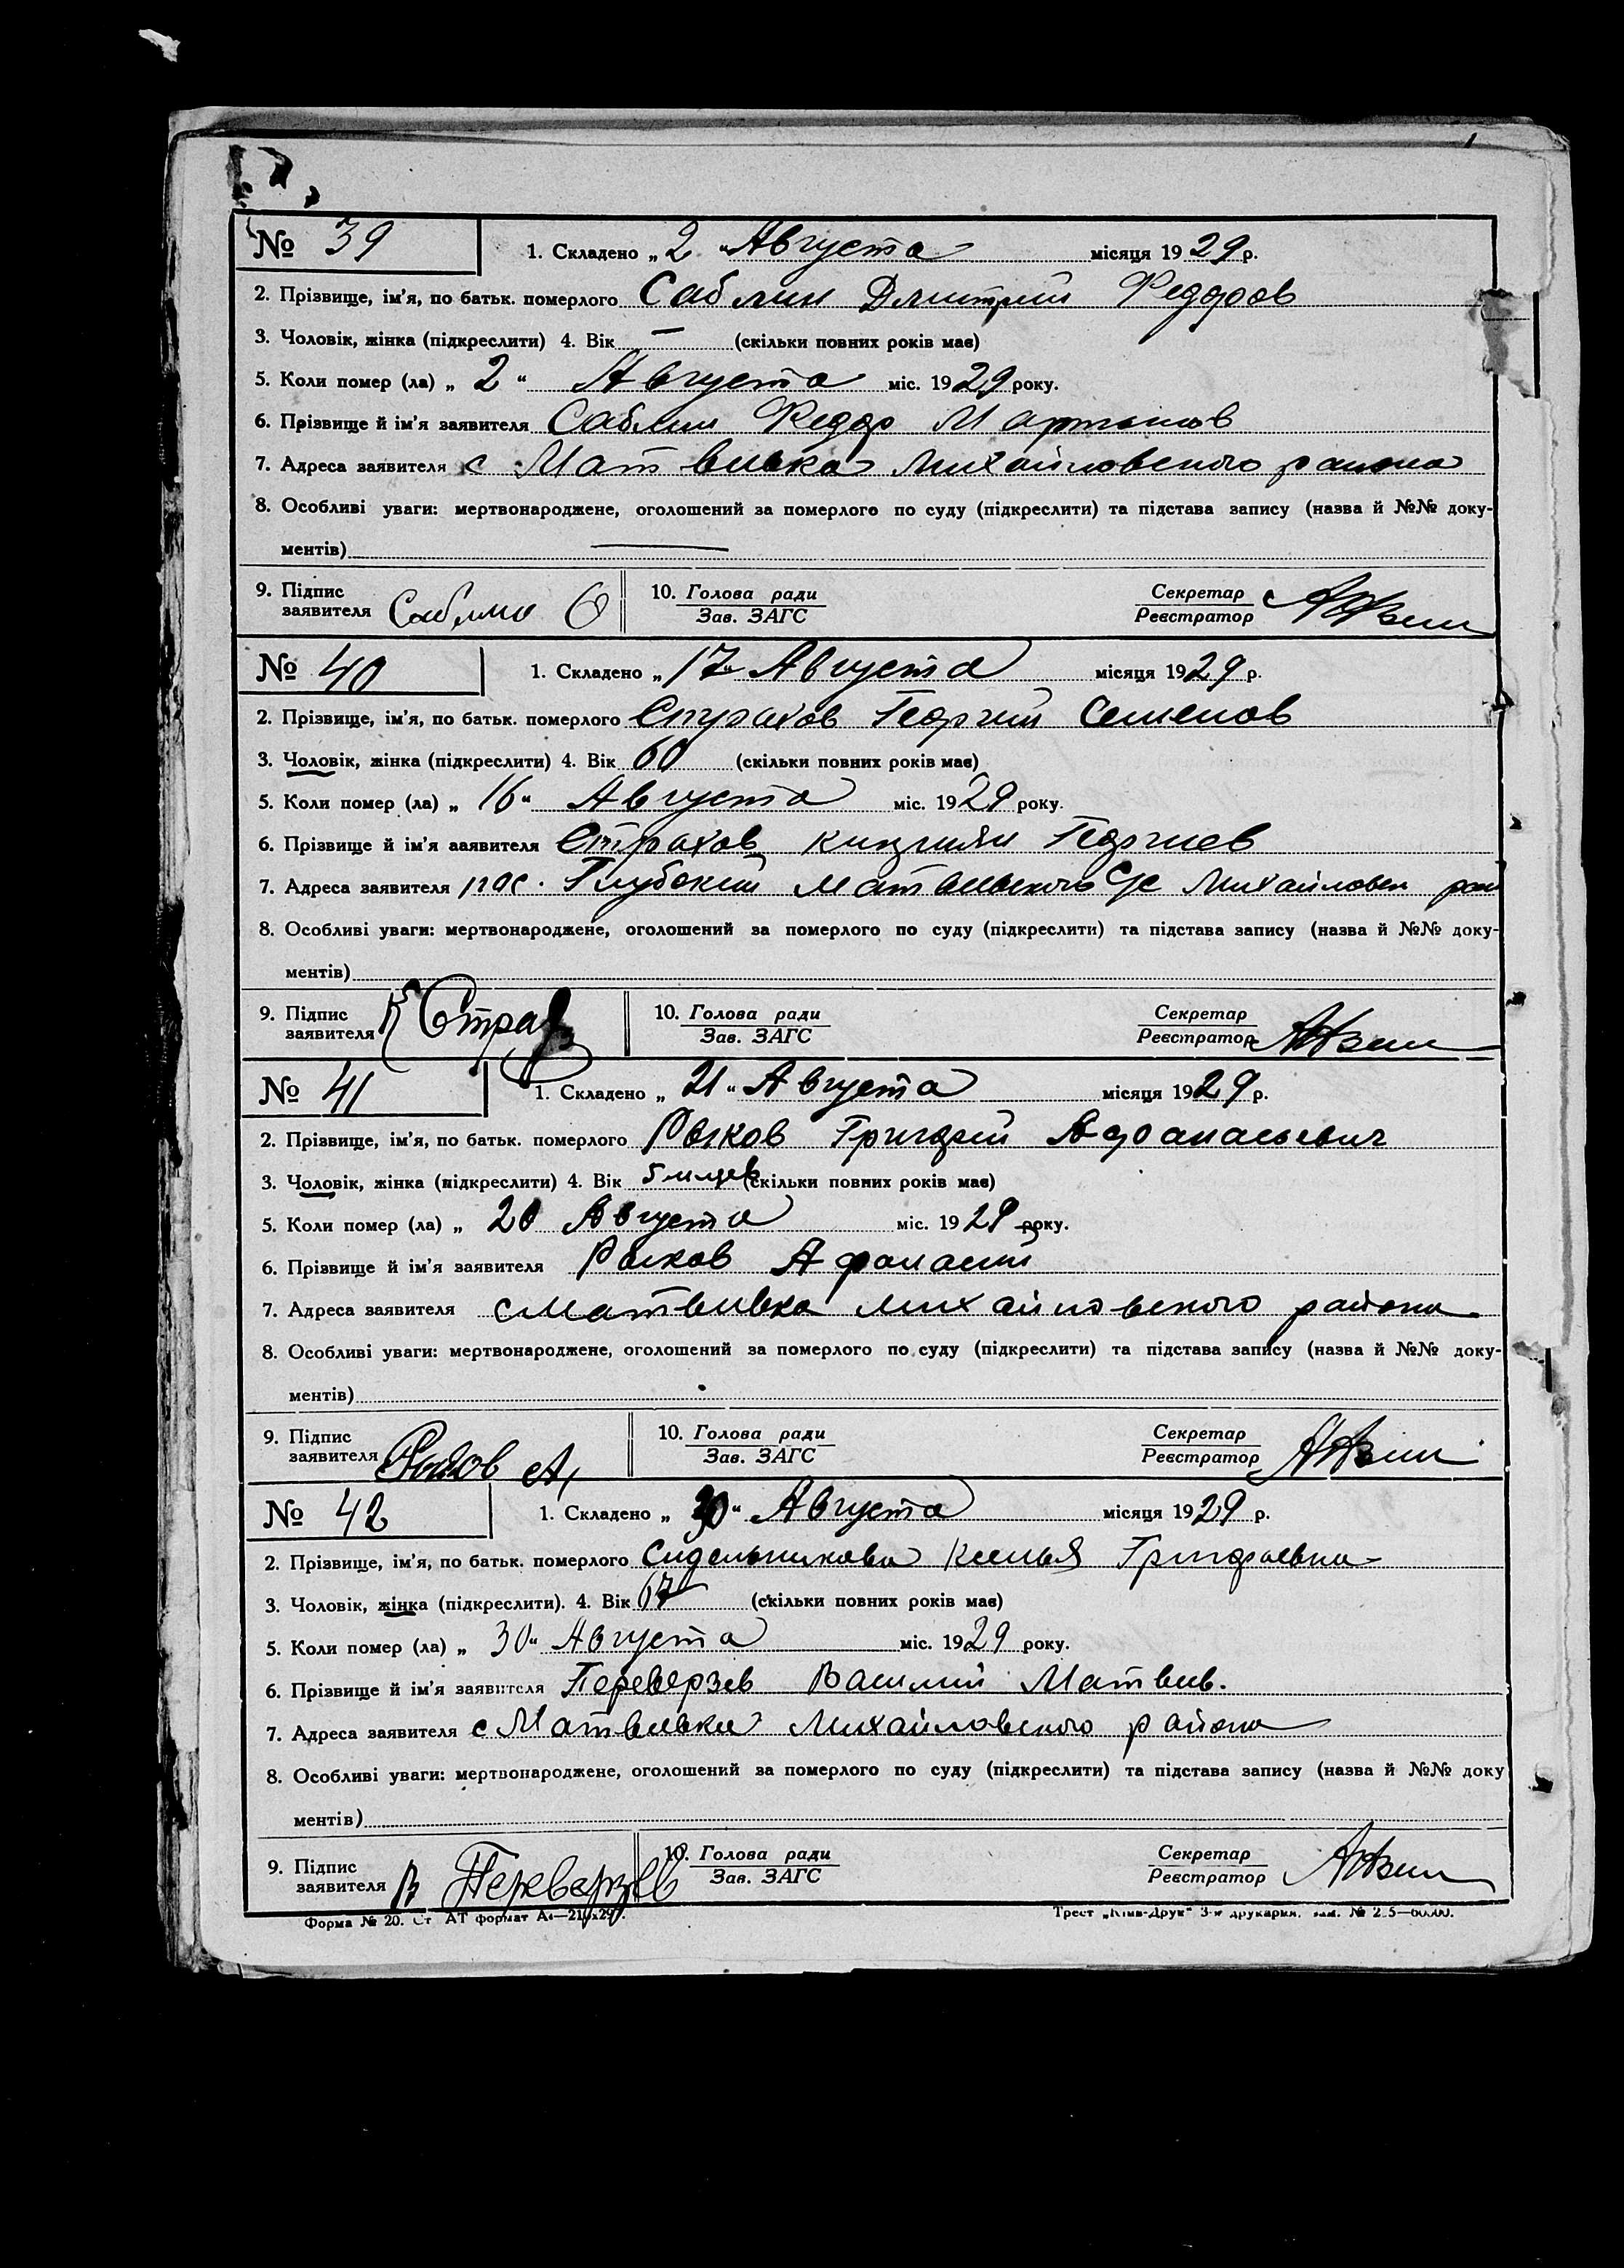 № 39
1. Складено „ 2 “ Августа місяця 1929 р.
2. Прізвище, ім'я, по батьк. померлого Саблин Дмитрий Федоров
3. Чоловік, жінка (підкреслити) 4. Вік — (скільки повних років має)
5. Коли помер (ла) „ 2 “ Августа міс. 1929 року.
6. Прізвище й ім'я заявителя Саблин Федор Мартынов
7. Адреса заявителя с Матвиивка Михайловского района
8. Особливі уваги: мертвонароджене, оголошений за померлого по суду (підкреслити) та підстава запису (назва й №№ доку-
ментів) —
9. Підпис заявителя Саблин 10. Голова ради Зав. ЗАГС Секретар Реєстратор
№ 40
1. Складено „ 17 “ Августа місяця 1929 р.
2. Прізвище, ім'я, по батьк. померлого Страхов Георгий Семенов
3. Чоловік, жінка (підкреслити) 4. Вік 60 (скільки повних років має)
5. Коли помер (ла) „ 16 “ Августа міс. 1929 року.
6. Прізвище й ім'я заявителя Страхов Георгиев
7. Адреса заявителя пос. Глубокий Матвиивского С/с Михайловск рай
8. Особливі уваги: мертвонароджене, оголошений за померлого по суду (підкреслити) та підстава запису (назва й №№ доку-
ментів)
9. Підпис заявителя К Страх 10. Голова ради Зав. ЗАГС Секретар Реєстратор
№ 41
1. Складено „ 21 “ Августа місяця 1929 р.
2. Прізвище, ім'я, по батьк. померлого Рыков Григорий Афанасьевич
3. Чоловік, жінка (підкреслити) 4. Вік 5 м-цев (скільки повних років має)
5. Коли помер (ла) „ 20 Августа міс. 1929 року.
6. Прізвище й ім'я заявителя Рыков Афанасий
7. Адреса заявителя с Матвиивка Михайловского района
8. Особливі уваги: мертвонароджене, оголошений за померлого по суду (підкреслити) та підстава запису (назва й №№ доку-
ментів)
9. Підпис заявителя Рыков А 10. Голова ради Зав. ЗАГС Секретар Реєстратор
№ 42
1. Складено „ 30 “ Августа місяця 1929 р.
2. Прізвище, ім'я, по батьк. померлого Сидельникова Ксенья Григорьевна
3. Чоловік, жінка (підкреслити). 4. Вік 67 (скільки повних років має)
5. Коли помер (ла) „ 30 “ Августа міс. 1929 року.
6. Прізвище й ім'я заявителя Переверзев Василий Матвеев.
7. Адреса заявителя с Матвиивка Михайловского района
8. Особливі уваги: мертвонароджене, оголошений за померлого по суду (підкреслити) та підстава запису (назва й №№ доку
ментів)
9. Підпис заявителя В Переверзев 10. Голова ради Зав. ЗАГС Секретар Реєстратор
Форма № 20. Ст АТ формат А4—210х297. Трест „Київ-Друк“ 3-я друкарня.